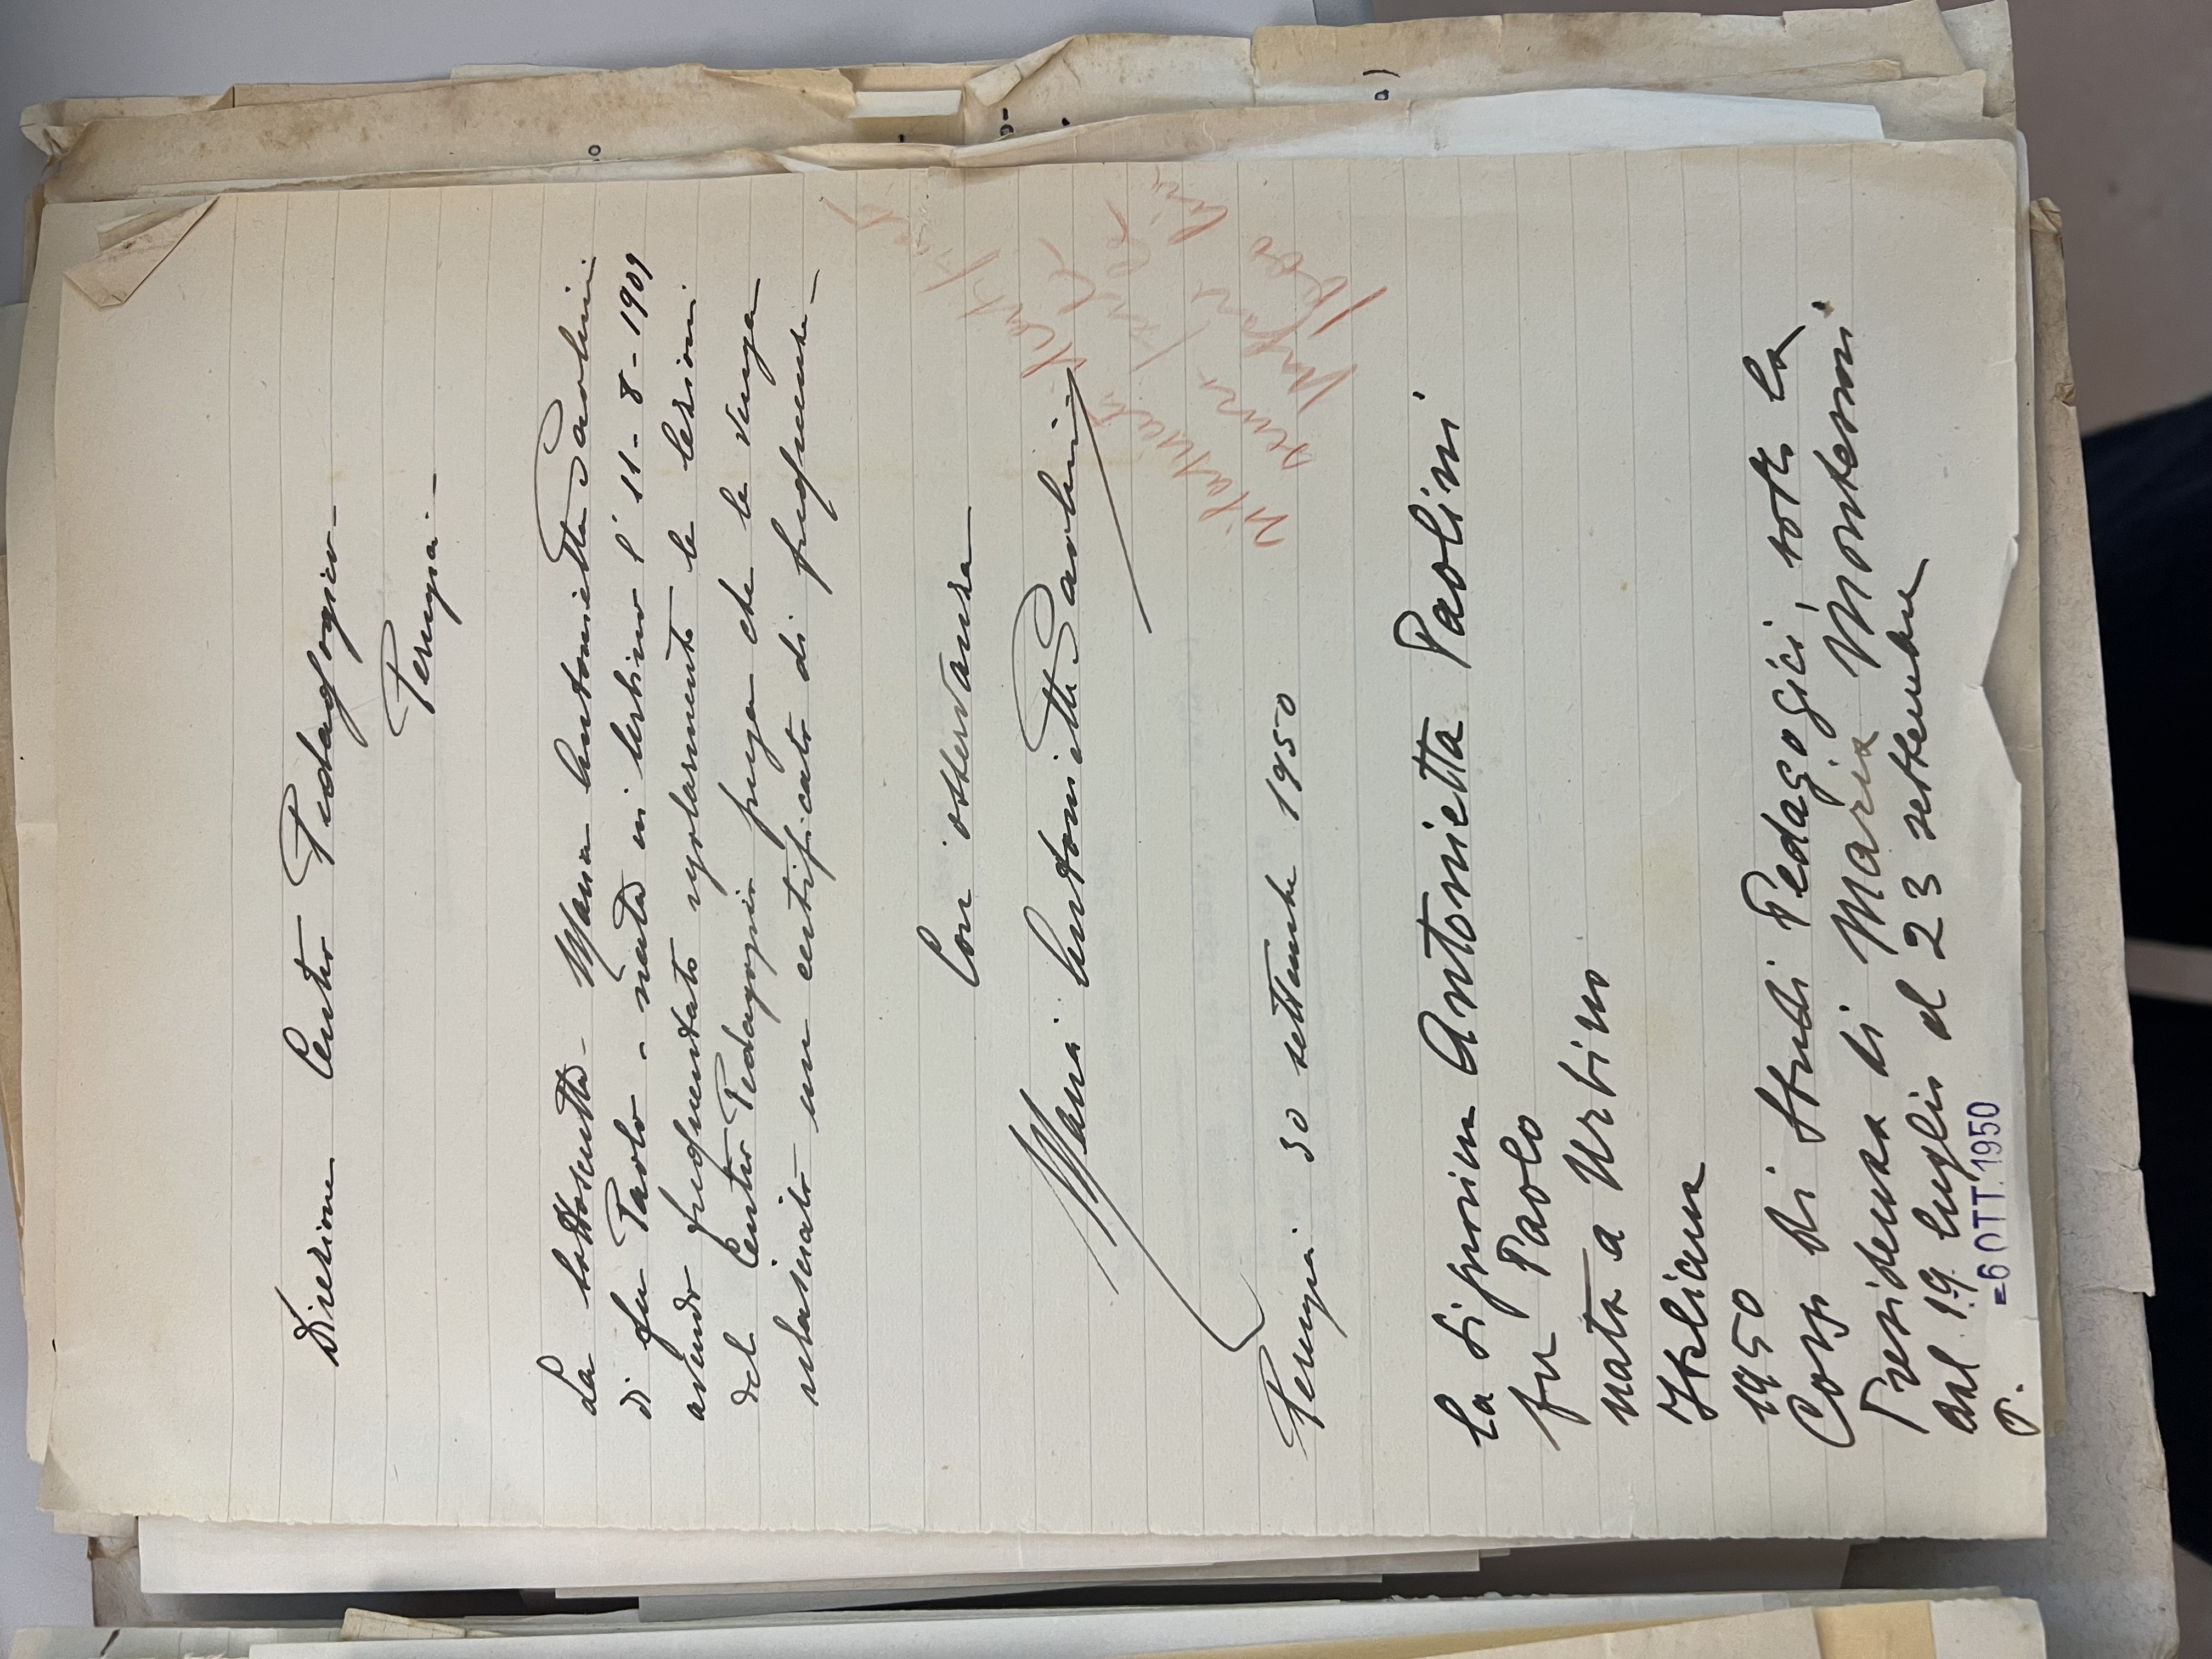 Direzione Centro Pedagogico -
Perugia. -
La sottoscritta - Maria Antonietta Paolini
di fu Paolo - nata in Urbino l' 11 - 8 - 1909
avendo frequentato regolarmente le lezioni
del Centro Pedagogico prega che le venga
rilasciato un certificato di frequenza. -
Con osservanza
Maria Antonietta Paolini
Perugia 30 settembre 1950
Rilasciato
senza
1500 lire
La Signorina Antonietta Paolini
fu Paolo
nata a Urbino
Italiana
1950
Corso di Studi Pedagogici, sotto la
Presidenza di Maria Montessori.
dal 19 luglio al 23 settembre
P.
= 6 OTT. 1950